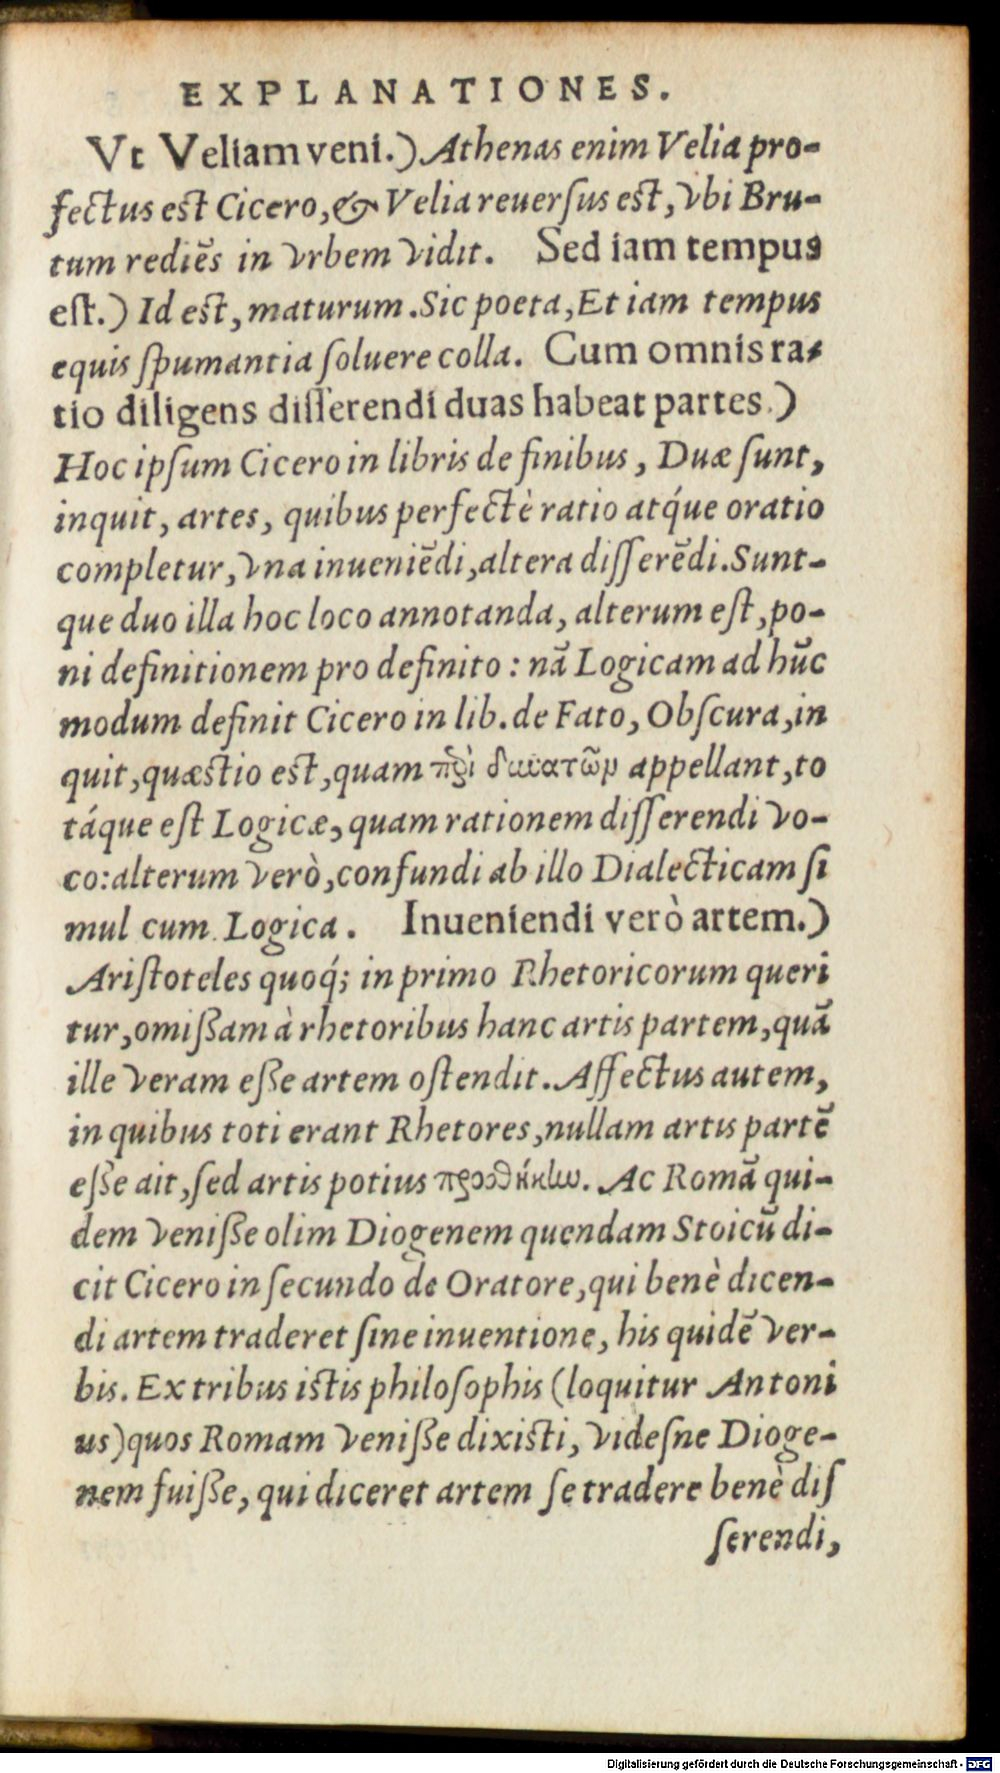 EXPLANATIONES.
Vt Veliam veni.) Athenas enim Velia pro-
fectus est Cicero, & Velia reuersus est, vbi Bru-
tum rediẽs in vrbem vidit. Sed iam tempus
est.) Id est, maturum. Sic poeta, Et iam tempus
equis spumantia soluere colla. Cum omnis ra-
tio diligens disserendi duas habeat partes.)
Hoc ipsum Cicero in libris de finibus, Duæ sunt,
inquit, artes, quibus perfectè ratio atq́ue oratio
completur, vna inueniẽdi, altera disserẽdi. Sunt-
que duo illa hoc loco annotanda, alterum est, po-
ni definitionem pro definito: nã Logicam ad hũc
modum definit Cicero in lib. de Fato, Obscura, in
quit, quæstio est, quam περὶ δυνατῶν appellant, to
táque est Logicæ, quam rationem disserendi vo-
co: alterum verò, confundi ab illo Dialecticam si
mul cum Logica. Inueniendi verò artem.)
Aristoteles quoq́; in primo Rhetoricorum queri
tur, omissam à rhetoribus hanc artis partem, quã
ille veram esse artem ostendit. Affectus autem,
in quibus toti erant Rhetores, nullam artis partẽ
esse ait, sed artis potius προσθήκην. Ac Romã qui-
dem venisse olim Diogenem quendam Stoicũ di-
cit Cicero in secundo de Oratore, qui benè dicen-
di artem traderet sine inuentione, his quidẽ ver-
bis. Ex tribus istis philosophis (loquitur Antoni
us) quos Romam venisse dixisti, videsne Dioge-
nem fuisse, qui diceret artem se tradere benè dis
serendi,
Digitalisierung gefördert durch die Deutsche Forschungsgemeinschaft - DFG